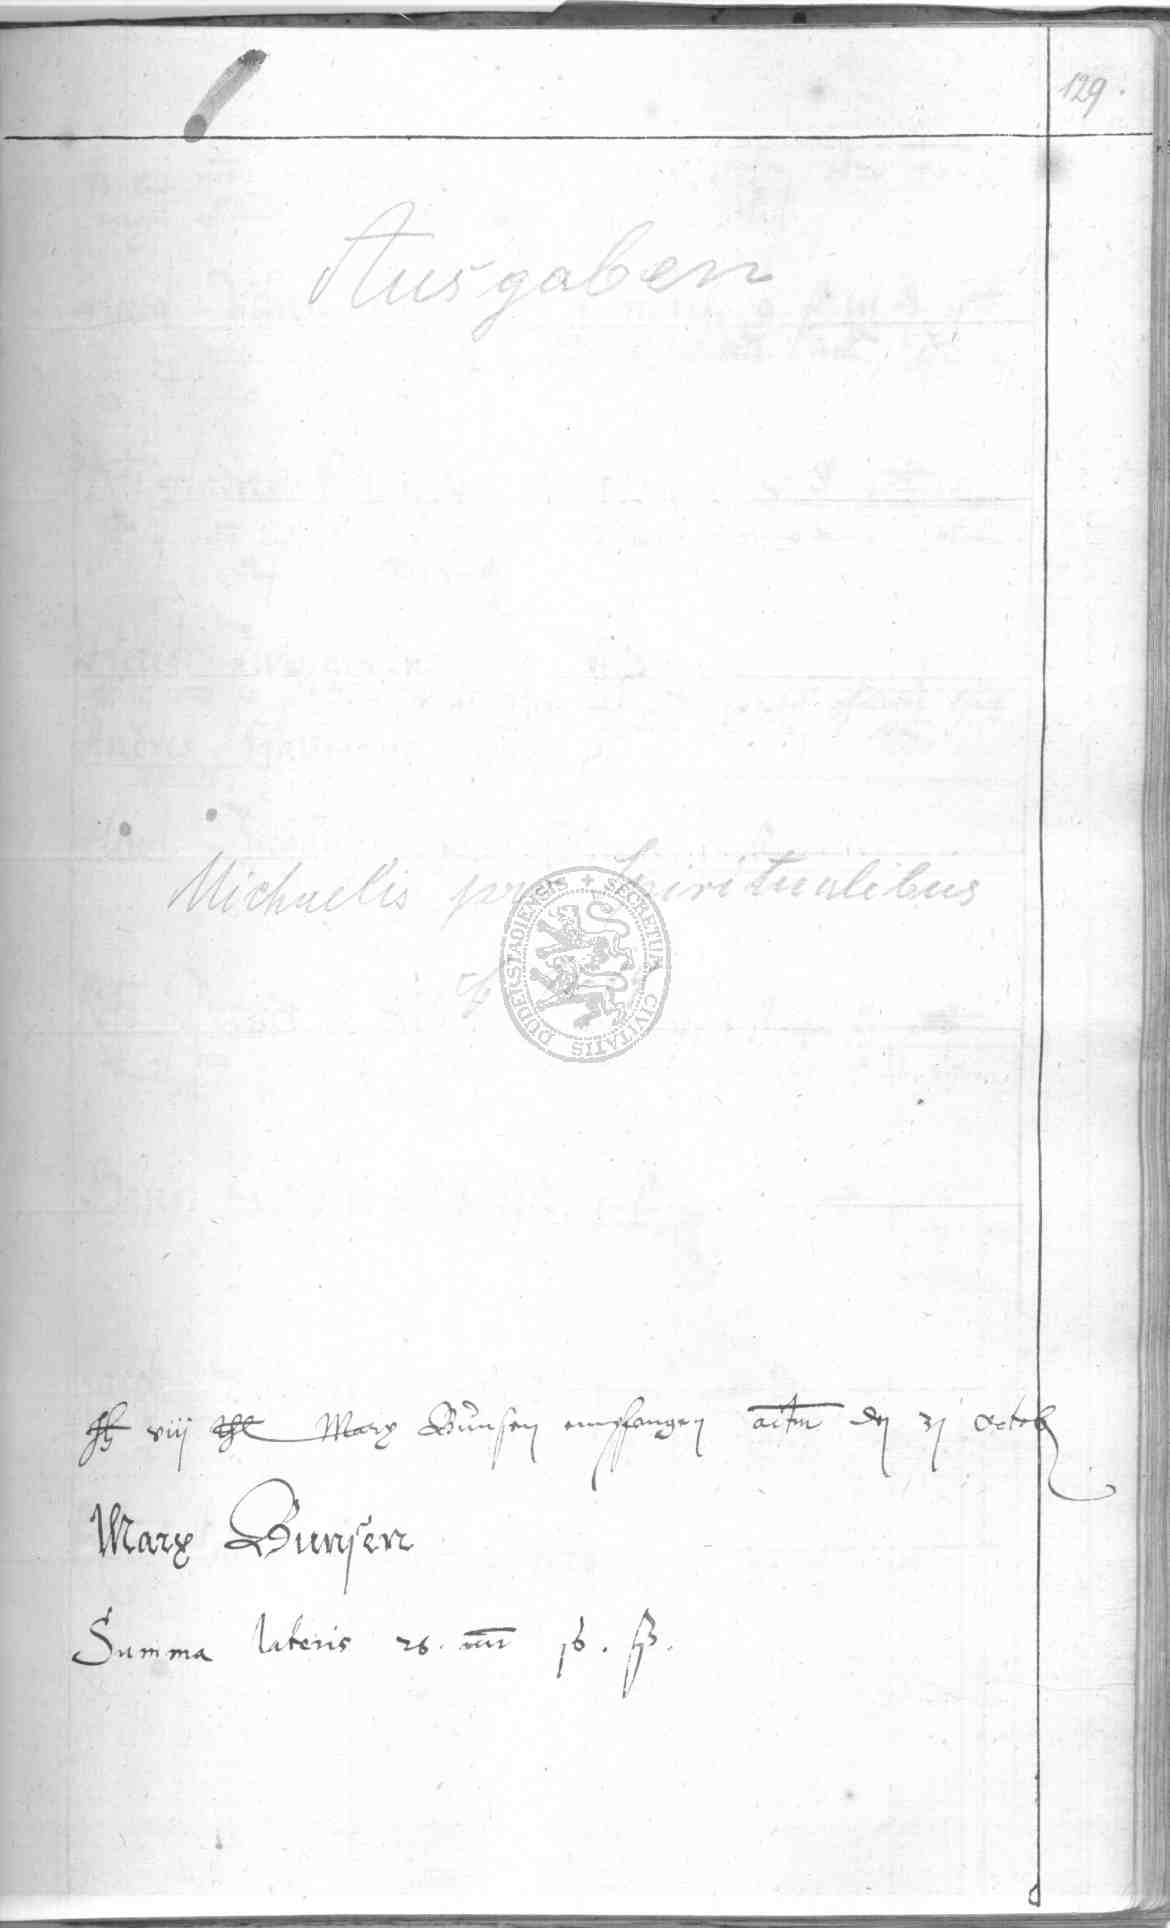 129.
Ausgaben
Michaelis pro Spiritualibus
SECRETUM CIVITATIS DUDERSTADIENSIS
viij thl Marx Bunsen empfangen actum den 31 Octob
Marx Bunsen
Summa lateris 26. mr 16. ß.